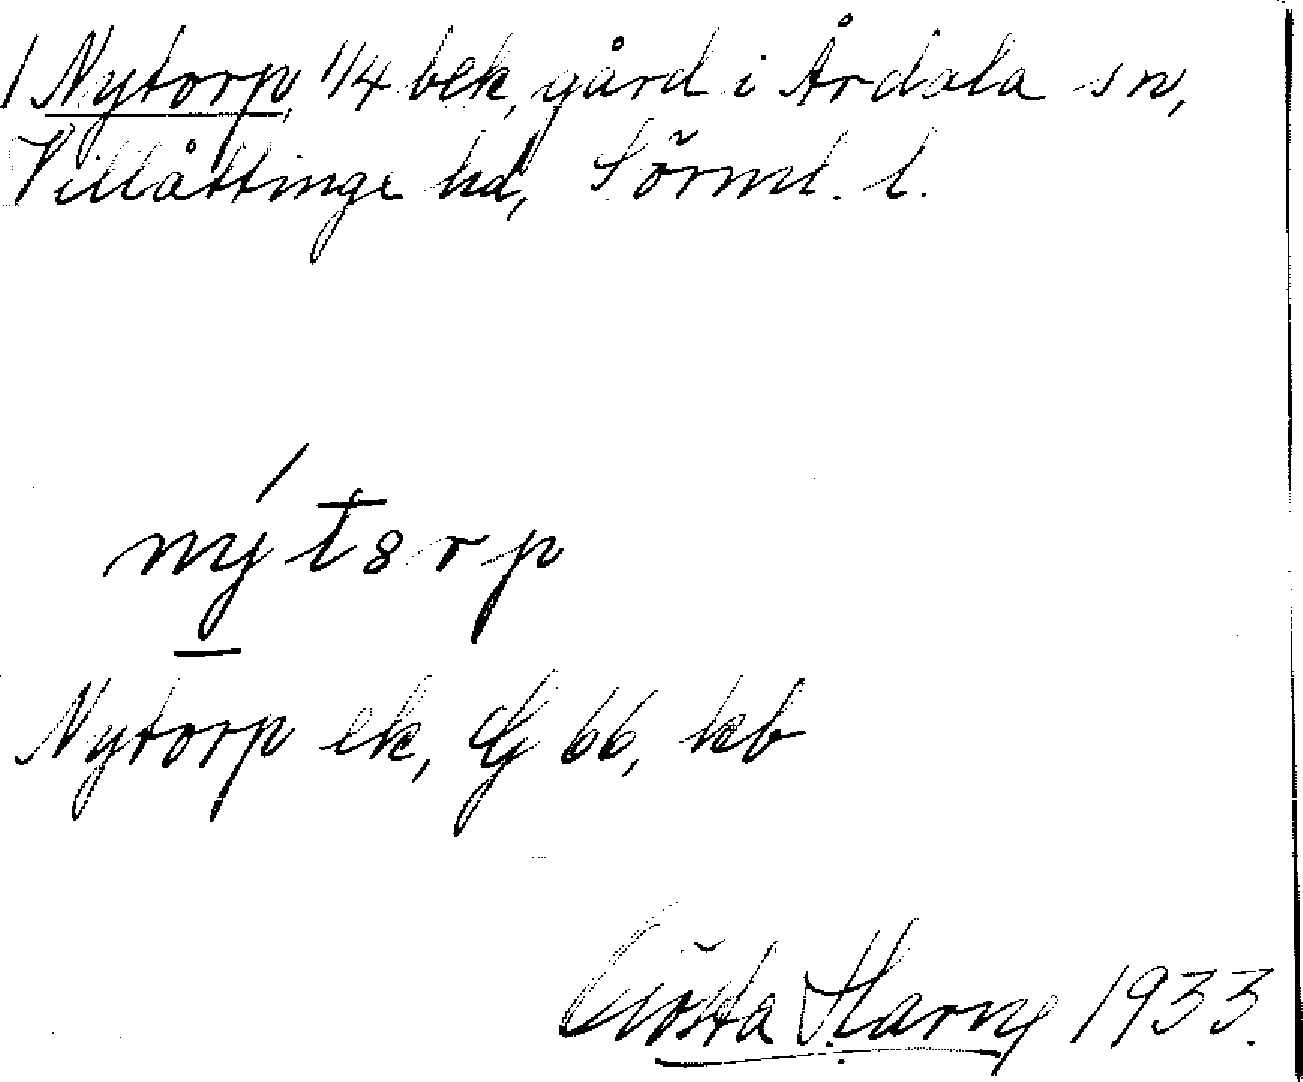 1 Nytorp, 1/4 bek, gård i Årdala sn,
Villåttinge hd, Sörml. l.
nýt8rp
Nytorp ek, G 66, kb
Gösta 1933.